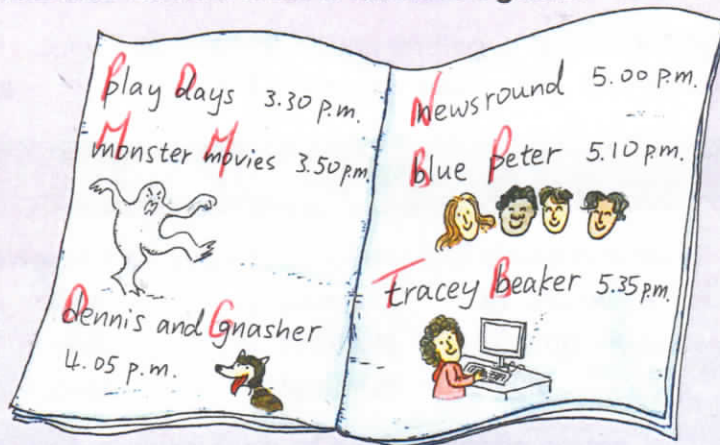 Play Days 3.30 p.m.
Monster Movies 3.50 p.m.
Dennis and Gnasher
4.05 p.m.
Newsround 5.00 p.m.
Blue Peter 5.10 p.m.
Tracey Beaker 5.35 p.m.